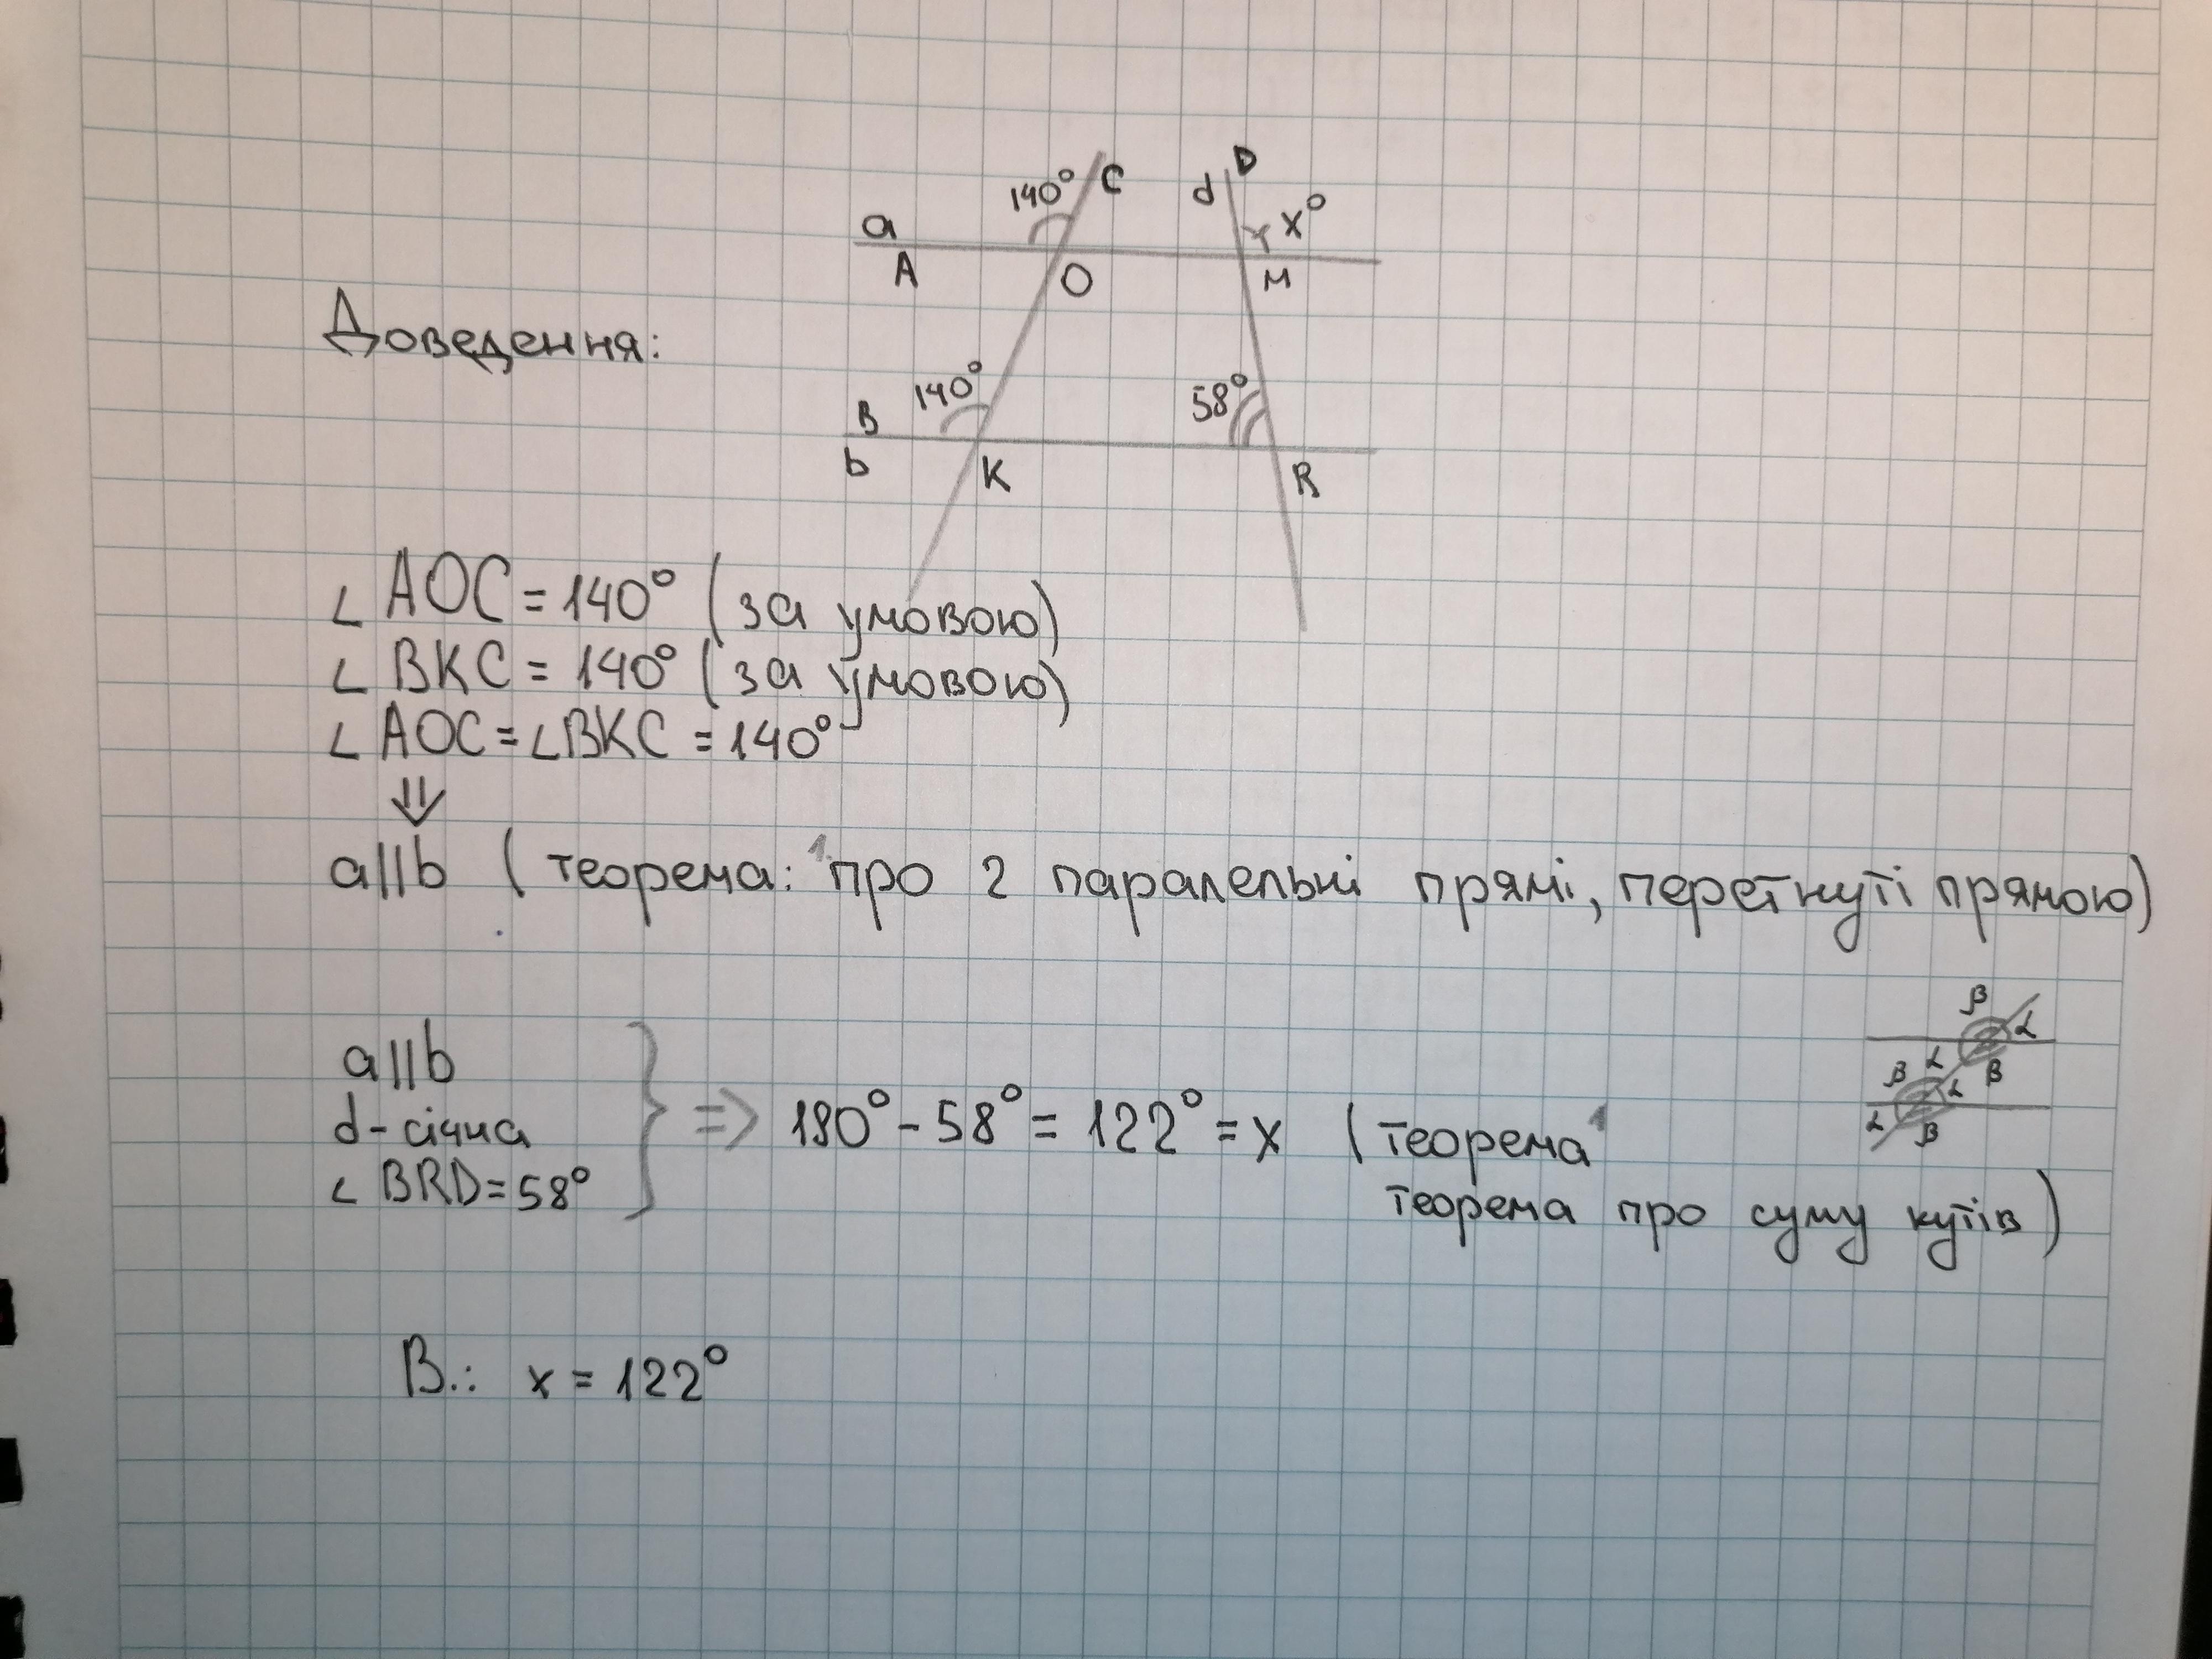 140° C d D x°
a
A O M
Доведення:
140° 58°
B
b K R
∠ AOC = 140° (за умовою)
∠ BKC = 140° (за умовою)
∠ AOC = ∠BKC = 140°
⇓
a||b (теорема: 1 про 2 паралельні прямі, перетнуті прямою)
β α
β α α β
α β
a||b
d - січна
∠ BRD = 58°
} => 180° - 58° = 122° = x (теорема 1
теорема про суму кутів)
В.: x = 122°